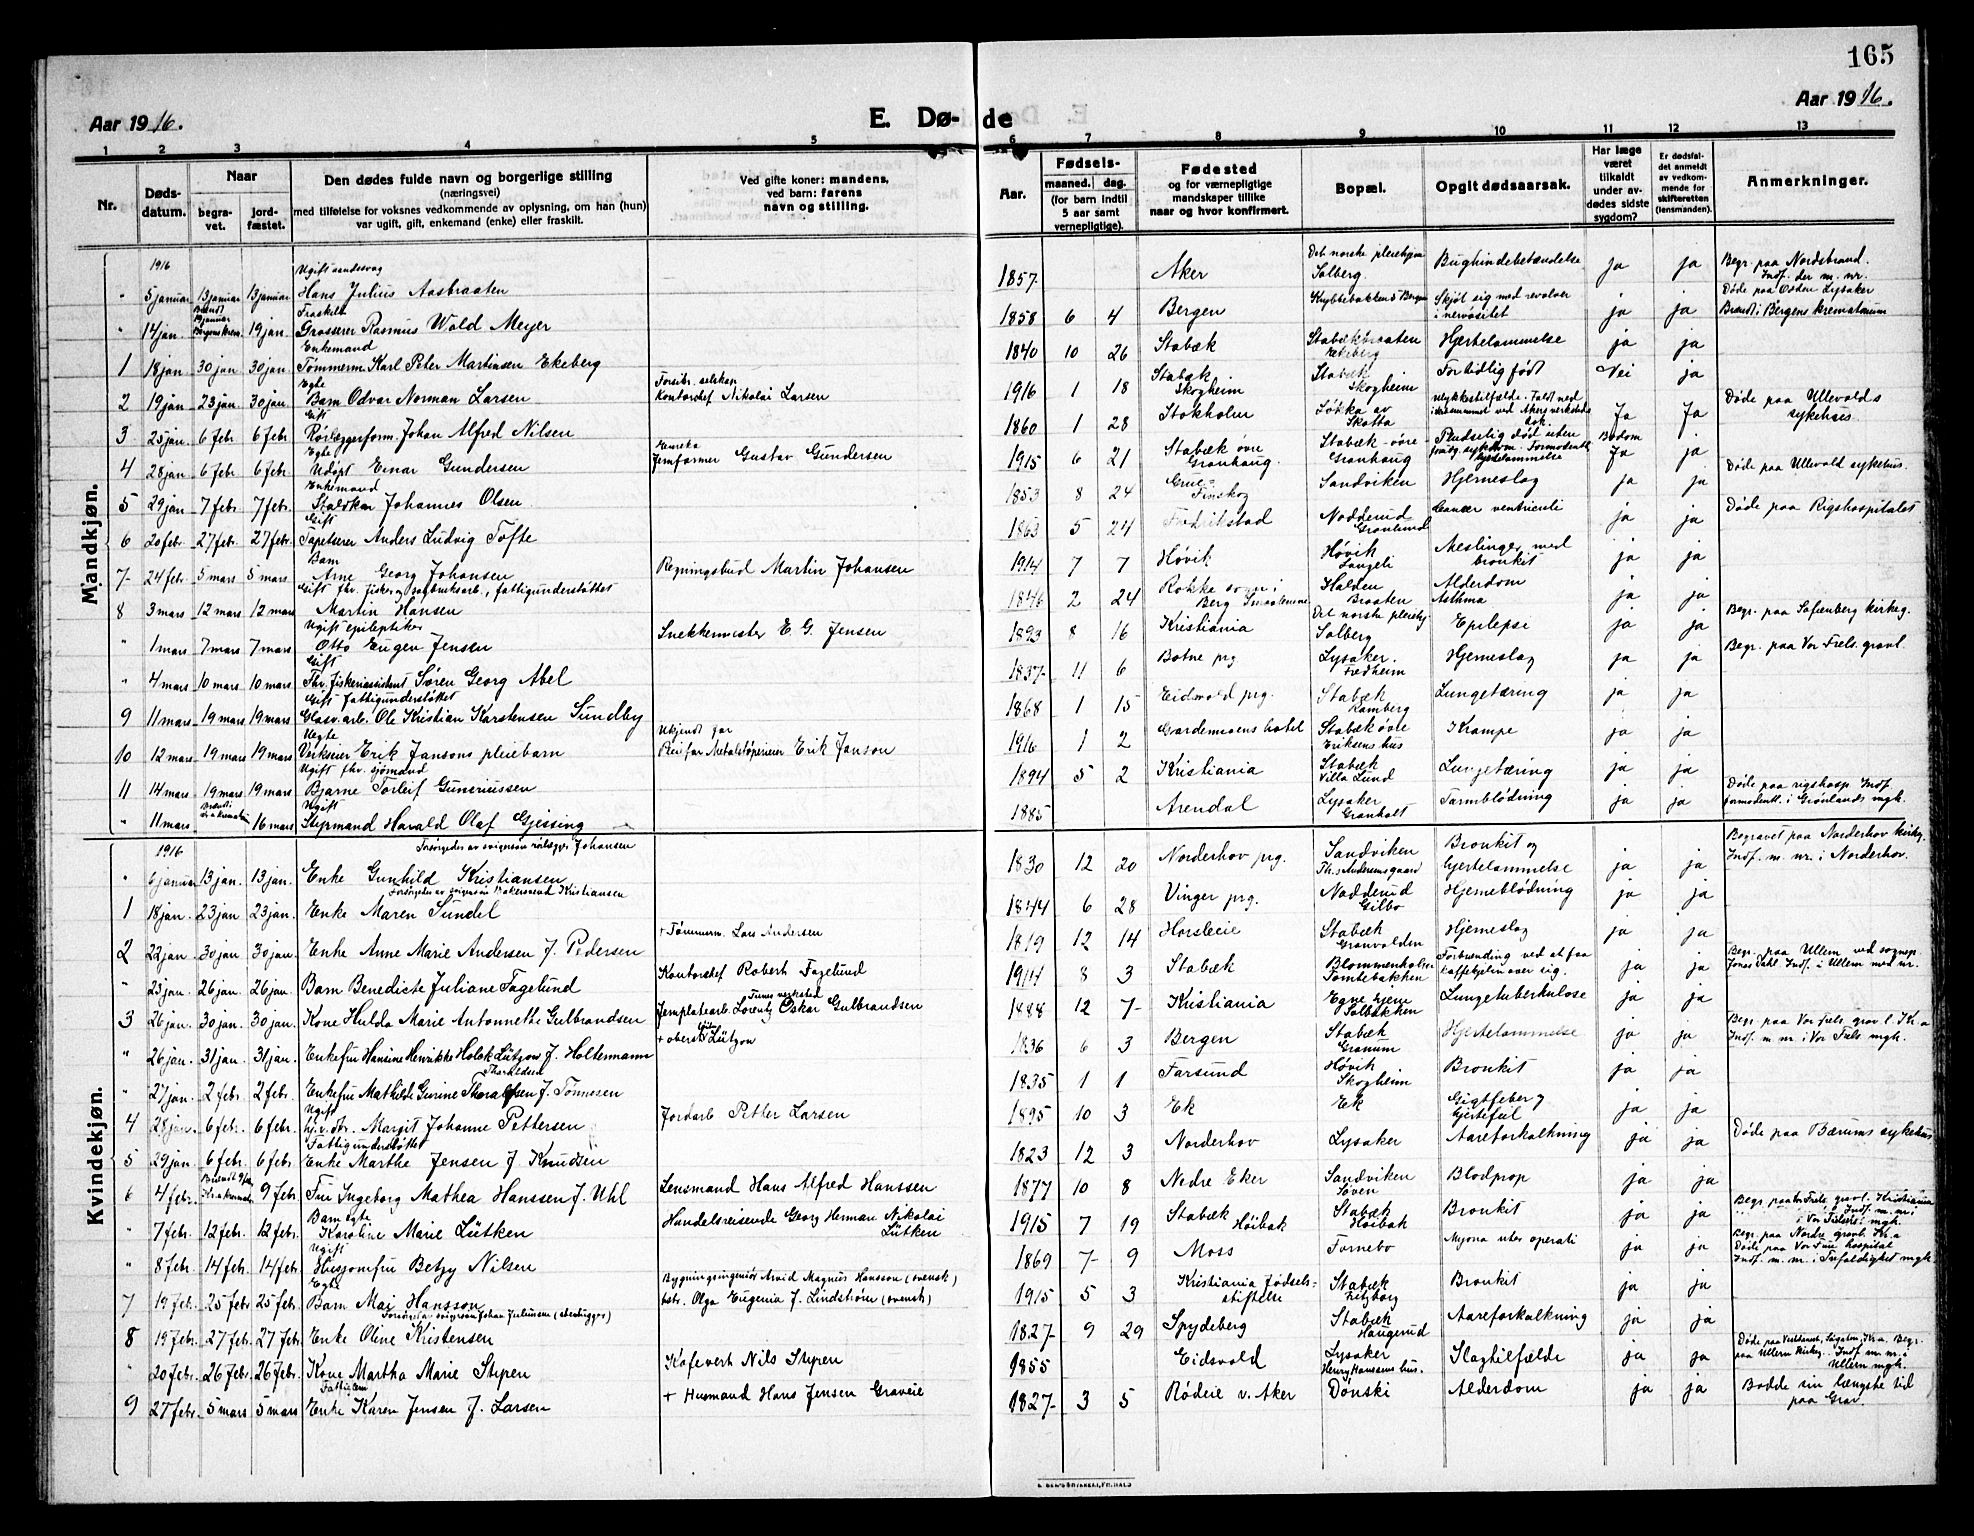 165
Aar 1916.
E. Dø-
de
Aar 1916.
1 2 3 4 5 6 7 8 9 10 11 12 13
Nr.
Døds-
datum.
Naar
begra-
vet.
jord-
fæstet.
Den dødes fulde navn og borgerlige stilling
(næringsvei)
med tilføielse for voksnes vedkommende av oplysning, om han (hun)
var ugift, gift, enkemand (enke) eller fraskilt.
Ved gifte koner: mandens,
ved barn: farens
navn og stilling.
Aar.
Fødsels-
maaned. dag.
(for barn indtil
5 aar samt
vernepligtige).
Fødested
og for værnepligtige
mandskaper tillike
naar og hvor konfirmert.
Bopæl.
Opgit dødsaarsak.
Har læge
været
tilkaldt
under av-
dødes sidste
sygdom?
Er dødsfal-
det anmeldt
av vedkom-
mende for
skifteretten
(lensmanden).
Anmerkninger.
Mandkjøn.
1916
Ugift sendssvag
" 5 januar 13 januar 13 januar Hans Julius Aasbraaten 1857 Aker Det norske pleiehjem Solberg. Bughindebetændelse ja ja Begr. paa Nordstrand. Indf. der m. nr.
Fraskilt
" 14 jan. 19 jan. Grosserer Rasmus Wold Meyer 1858 6 4 Bergen Skjøt sig med revolver i nervøsitet ja ja Døde paa Odden Lysaker Brændt i Bergens krematorium
Enkemand
1 18 jan 30 jan 30 jan. Tømmerm. Karl Peter Martinsen Ekeberg 1840 10 26 Stabæk Stabækbraaten Ekeberg Hjertelammelse ja ja
Egte
2 19 jan 23 jan 30 jan. Barn Odvar Norman Larsen Kontorchef Nikolai Larsen 1916 1 18 Stabæk Skogheim Stabæk Skogheim For tidlig født Nei ja
Gift
3 25 jan. 6 febr 6 febr. Rørlæggerform. Johan Alfred Nilsen 1860 1 28 Stokholm Løkka av Skotta Ja Ja Døde paa Ullevolds sykehus.
Egte
4 28 jan 6 febr 6 febr. Udøpt Einar Gundersen Jernformer Gustav Gundersen 1915 6 21 Stabæk øvre Granhaug. Stabæk øvre Granhaug Pludselig død uten Formodentl. Hjertelammelse Ja ja
Enkemand
5 29 jan 7 febr. 7 febr. Staldkar Johannes Olsen 1853 8 24 Grue Finskog Sandviken Hjerneslag ja ja Døde paa Ullevold sykehus.
Gift
6 20 febr. 27 febr. 27 febr. Tapetserer Anders Ludvig Tofte 1863 5 24 Fredrikstad Nadderud Grønlund Cancer ventriculi ja ja Døde paa Rigshospitalet
Barn
7 24 febr. 5 mars 5 mars. Arne Georg Johansen Regningsbud Martin Johansen 1914 7 7 Høvik Høvik Meslinger med bronkit ja ja
Gift fhv. fisker og sagbruksarb., fattigunderstøttet
8 3 mars 12 mars 12 mars Martin Hansen 1846 2 24 Rokke sogn i Berg Smaalenene Halden Braaten Alderdom Asthma ja ja
Ugift epileptiker
" 1 mars 7 mars 7 mars Otto Eugen Jensen Snekkermester E. G. Jensen 1893 8 16 Kristiania Det norske pleiehj. Solberg Epilepsi ja ja Begr. paa Sofienberg kirkeg.
Gift
" 4 mars 10 mars. 10 mars. Fhv. fiskeriassistent Søren Georg Abel 1837 11 6 Botne prg Lysaker. Fredheim Hjerneslag ja ja Begr. paa Vor Frels. gravl.
Gift fattigunderstøttet
9 11 mars 19 mars 19 mars. Glasv. arb. Ole Kristian Karstensen Sundby 1868 1 15 Eidsvold prg. Stabæk Ramberg Lungetæring ja ja
Uegte
10 12 mars 19 mars 19 mars Verkseier Erik Jansons pleiebarn Ukjendt far Pleiefar Metalstøperieier Erik Janson 1916 1 2 Gardemoens hotel Stabæk øvre Eriksens hus Krampe ja ja
Ugift fhv. sjømand
11 14 mars 19 mars 19 mars Bjarne Torleif Guneriussen 1894 5 2 Kristiania Stabæk Villa Lund Lungetæring ja ja
Ugift
" 11 mars 16 mars Styrmand Harald Olaf Gjessing 1885 Arendal Lysaker Granholt Tarmblødning ja ja Døde paa rigshosp. Indf. formodentl. i Grønlands mgh.
Kvindekjøn.
1916
" 6 januar 13 jan. 13 jan. Enke Gunhild Kristiansen 1830 12 20 Norderhov prg. Sandviken Bronkit og Hjertelammelse ja ja Begravet paa Norderhov kirkg. Indf. m. nr. i Norderhov.
1 18 jan. 23 jan 23 jan. Enke Maren Sundel 1844 6 28 Vinger prg. Nadderud Gilbo Hjerneblødning ja ja
2 22 jan. 30 jan 30 jan. Enke Anne Marie Andersen f. Pedersen + Tømmerm. Lars Andersen 1819 12 14 Stabæk Granvolden Hjerneslag ja ja
" 23 jan. 26 jan. 26 jan. Barn Benedicte Juliane Fagelund Kontorchef Robert Fagelund 1914 8 3 Stabæk Forbrænding ved at faa kaffekjelen over sig. ja ja
3 26 jan. 30 jan. 30 jan. Kone Hulda Marie Antonnette Gulbrandsen Jernplatearb. Lorentz Oskar Gulbrandsen 1888 12 7 Kristiania Egne hjem Solbakken Lungetuberkulose ja ja
" 26 jan. 31 jan. 31 jan. Enkefru Hansine Henrikke Holck Lützow f. Holtermann + oberst Lützow 1836 6 3 Bergen Stabæk Granum Hjertelammelse ja ja Indf. m. nr i Vor Frels mgh.
" 27 jan. 2 febr. 2 febr. Enkefru Mathilde Gurine Tharaldsen f. Tønnesen 1835 1 1 Farsund Høvik Skogheim Bronkit ja ja
Ugift
4 28 jan. 6 febr. 6 febr. Margit Johanne Pettersen Jordarb Petter Larsen 1895 10 3 Ek Ek Gigtfeber og Hjertefeil ja ja
Fattigunderstøttet
5 29 jan 6 febr. 6 febr. Enke Marthe Jensen f. Knudsen 1823 12 3 Norderhov Lysaker Aareforkalkning ja ja Døde paa Bærums sykehus
6 4 febr. 9 febr. Fru Ingeborg Mathea Hanssen f. Uhl Lensmand Hans Alfred Hanssen 1877 10 8 Nedre Eker Sandviken Løven Blodprop ja ja
Barn egte
" 7 febr. 12 febr. 12 febr. Karoline Marie Lütken Handelsreisende Georg Herman Nikolai Lütken 1915 7 19 Stabæk Høibak Stabæk Høibak Bronkit ja ja
Ugift
" 8 febr. 14 febr. 14 febr. Husjomfru Betzy Nilsen 1869 7 9 Moss Fornebo Myoma uter. operati ja ja Døde paa Vor Frue hospital Indf. m. nr. i Trefoldighet mgh.
Egte
7 19 febr. 25 febr. 25 febr. Barn Mai Hansson Bygningsingeniør Arvid Magnus Hansson (svensk) hstr. Olga Eugenia f. Lindström (svensk) 1915 5 3 Kristiania Fødsels-stiftelse Stabæk Fritzborg Bronkit ja ja
8 19 febr. 27 febr. 27 febr. Enke Oline Kristensen 1827 9 29 Spydeberg Stabæk Haugerud Aareforkalkning ja ja
" 20 febr. 26 febr. 26 febr. Kone Martha Marie Stypen Kafevert Nils Stypen 1855 Eidsvold Lysaker Henry Hansens hus. Slagtilfælde ja ja
Fattiglem
9 27 febr. 5 mars 5 mars Enke Karen Jensen f. Larsen + Husmand Hans Jensen Graveie 1827 3 5 Rødeie v. Aker Dønski Alderdom ja ja Bodde sin længste tid paa Grav.